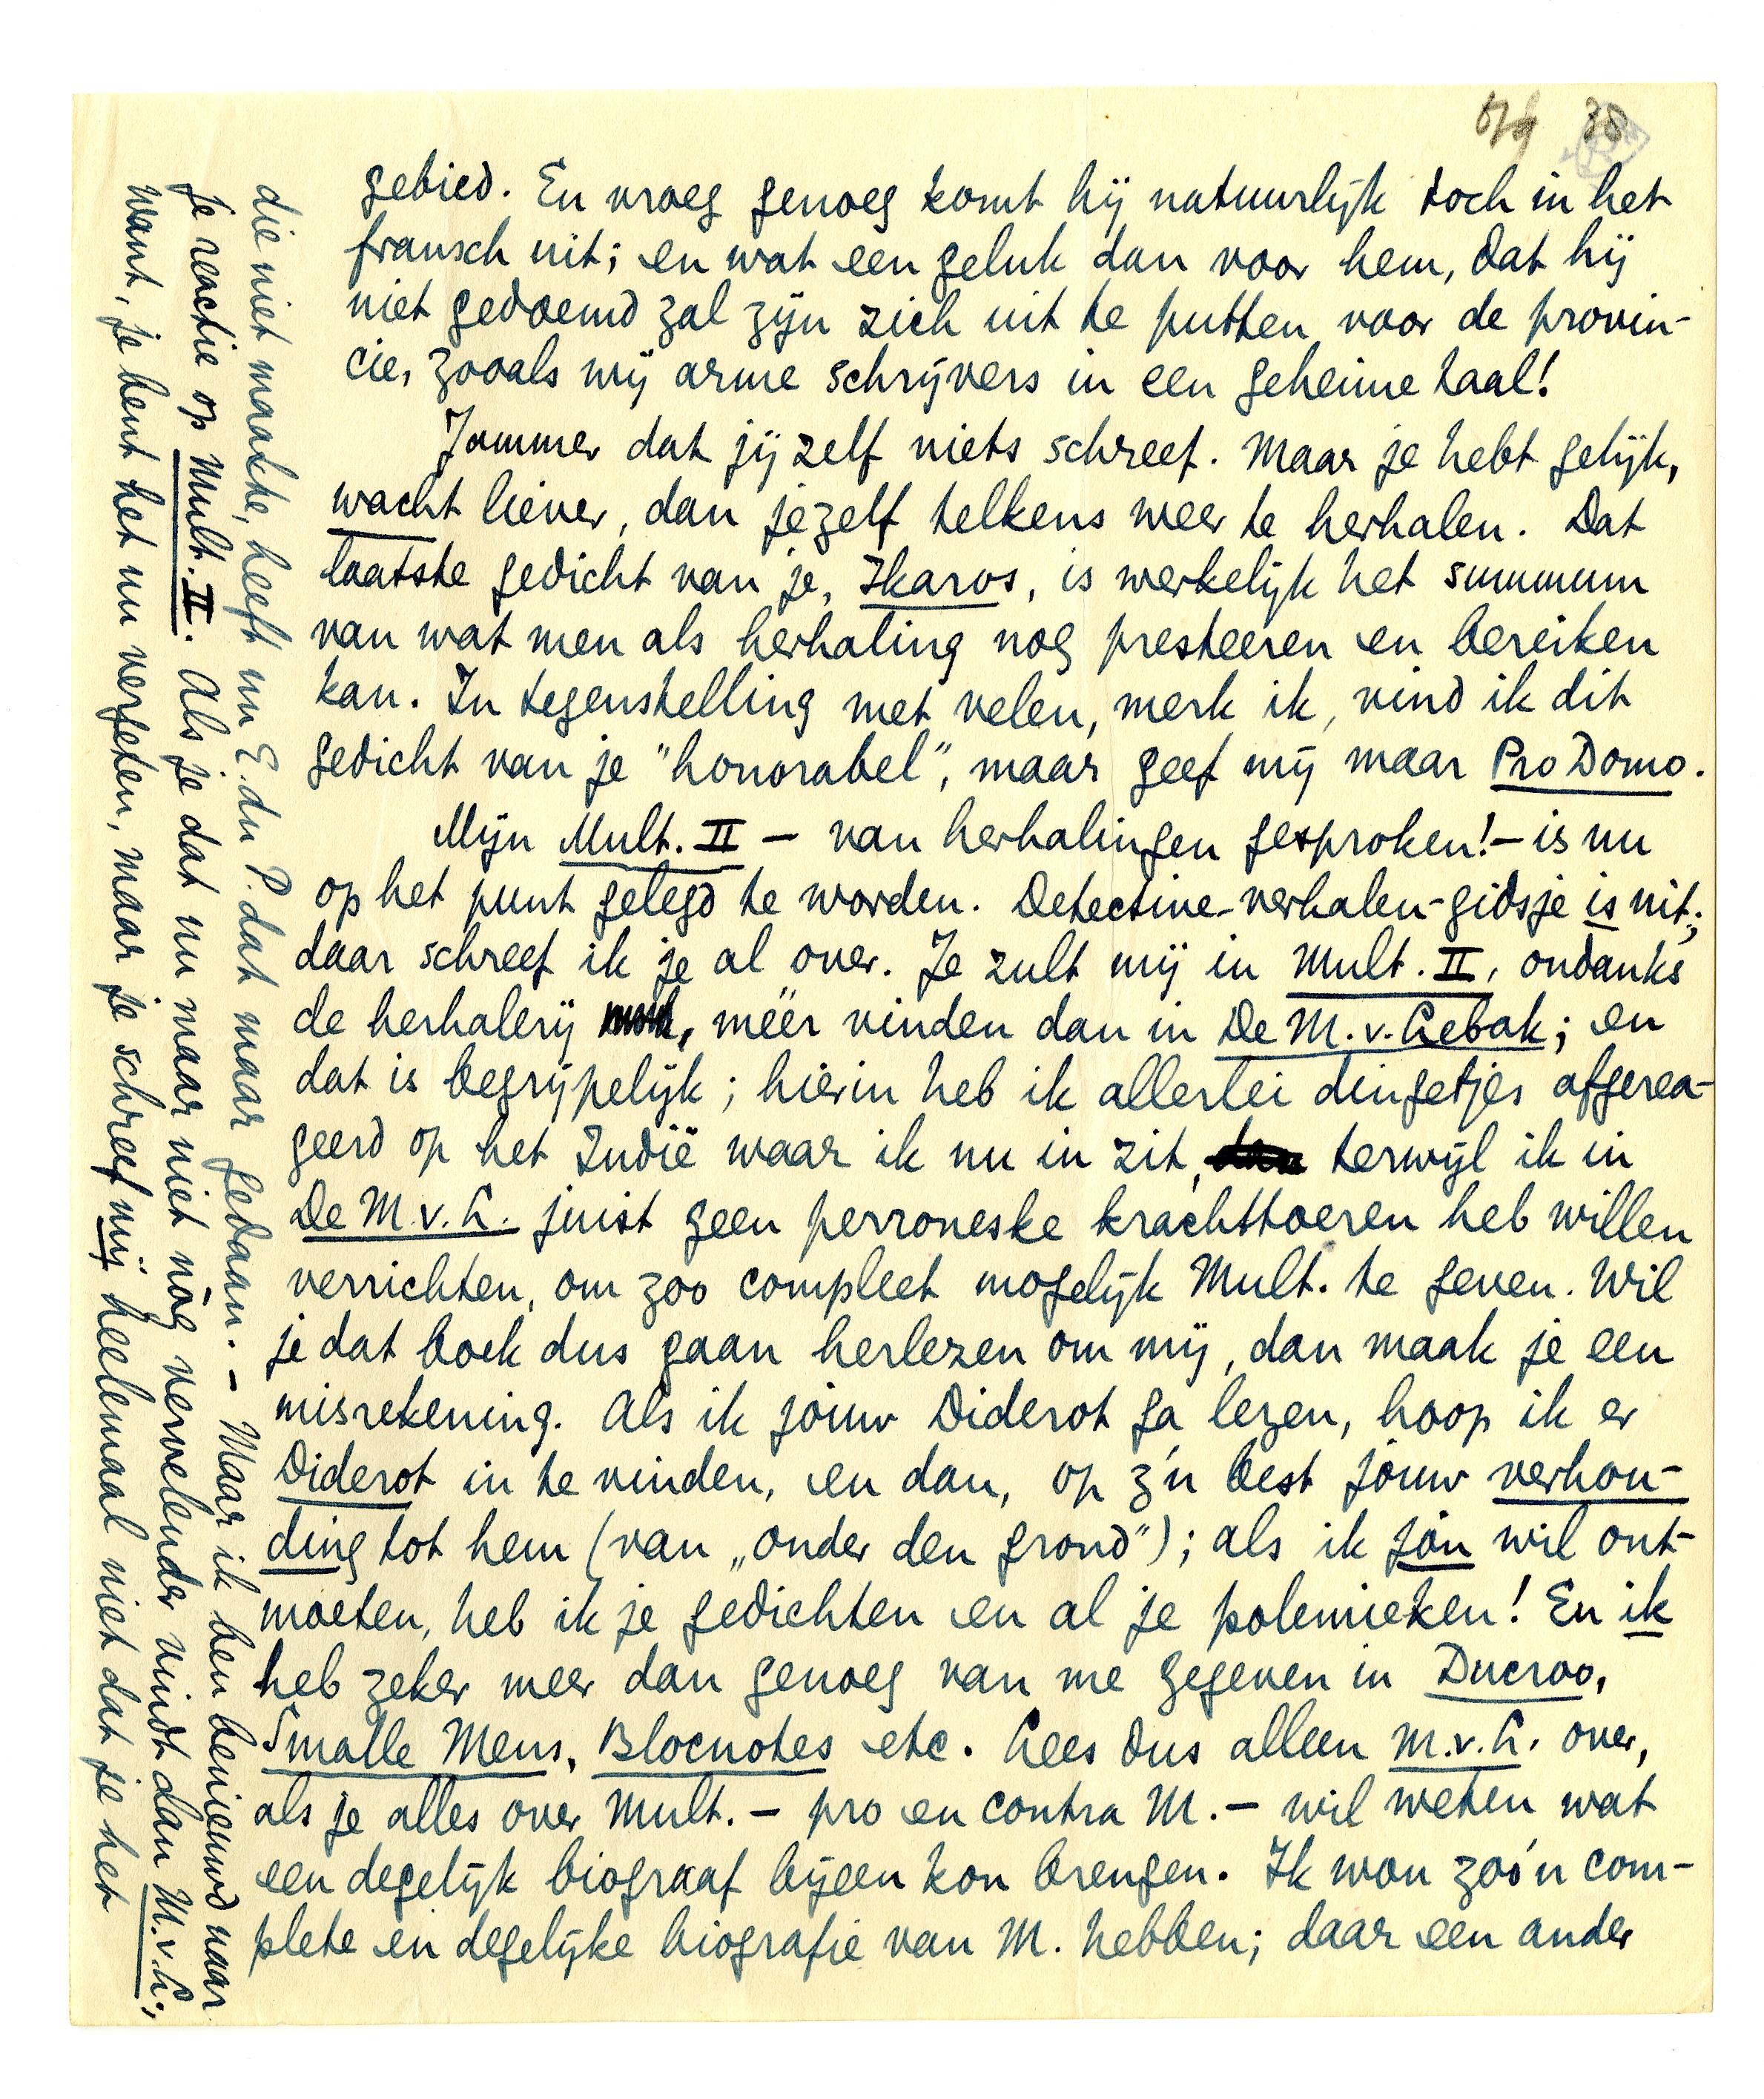 gebied. En vroeg genoeg komt hij natuurlijk toch in het
fransch uit; en wat een geluk dan voor hem, dat hij
niet gedoemd zal zijn zich uit te putten voor de provin-
cie, zooals wij arme schrijvers in een geheime taal!
Jammer dat jij zelf niets schreef. Maar je hebt gelijk,
wacht liever, dan jezelf telkens weer te herhalen. Dat
laatste gedicht van je, Ikaros, is werkelijk het summum
van wat men als herhaling nog presteeren en bereiken
kan. In tegenstelling met velen, merk ik, vind ik dit
gedicht van je "honorabel", maar geef mij maar Pro Domo.
Mijn Mult. II — van herhalingen gesproken! — is nu
op het punt gelegd te worden. Detective-verhalen-gidsje is uit;
daar schreef ik je al over. Je zult mij in Mult. II, ondanks
de herhalerij, méér vinden dan in De M. v. Lebak; en
dat is begrijpelijk; hierin heb ik allerlei dingetjes afgerea-
geerd op het Indië waar ik nu in zit, terwijl ik in
De M. v. L. juist geen perroneske krachttoeren heb willen
verrichten, om zoo compleet mogelijk Mult. te geven. Wil
je dat boek dus gaan herlezen om mij, dan maak je een
misrekening. Als ik jouw Diderot ga lezen, hoop ik er
Diderot in te vinden, en dan, op z'n best jouw verhou-
ding tot hem (van „onder den grond"); als ik jóu wil ont-
moeten, heb ik je gedichten en al je polemieken! En ik
heb zeker meer dan genoeg van me gegeven in Ducroo,
Smalle Mens, Blocnotes etc. Lees dus alleen M. v. L. over,
als je alles over Mult. — pro en contra M. — wil weten wat
een degelijk biograaf bijeen kon brengen. Ik wou zóó'n com-
plete en degelijke biografie van M. hebben; daar een ander
die niet maakte, heeft nu E. du P. dat maar gedaan. — Maar ik ben benieuwd naar
je reactie op Mult. II. Als je dat nu maar niet nòg vervelender vindt dan M. v. L.;
want, je bent het nu vergeten, maar je schreef mij heelemaal niet dat je het